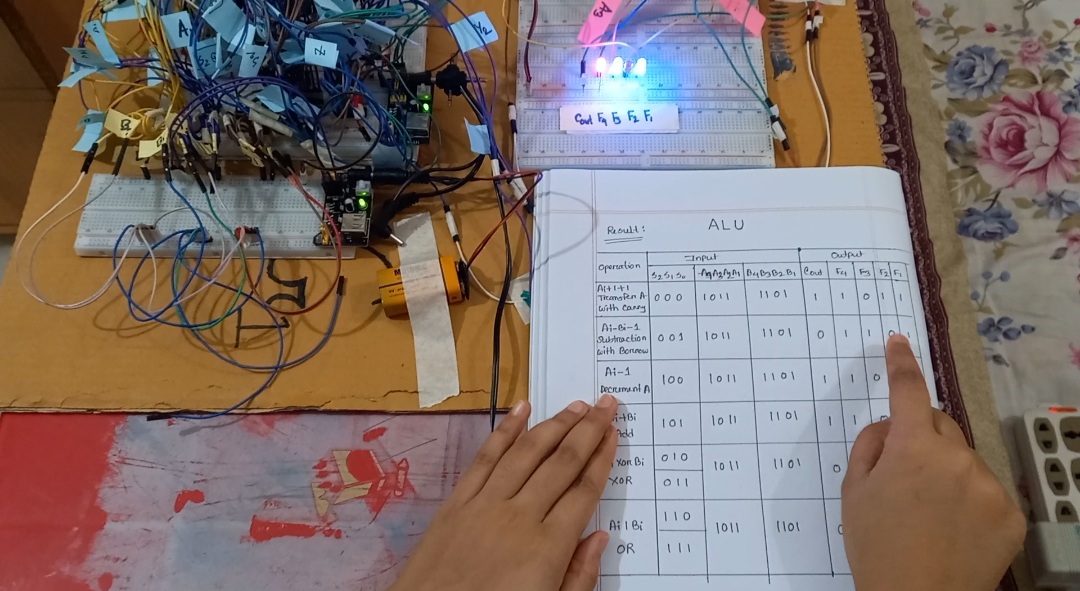 A3
Y2
Cout F4 F3 F2 F1
Result:
ALU
Operation
Input
Output
S2 S1 S0
A4 A3 A2 A1
B4 B3 B2 B1
Cout
F4
F3
F2
F1
Ai+1+1
Transfer A
with Carry
0 0 0
1011
1101
1
1
0
1
1
Ai-Bi-1
Subtraction
with Borrow
0 0 1
1011
1101
0
1
1
0
1
Ai-1
Decrement A
100
1011
1101
1
1
0
101
1011
1101
1
1
Xor Bi
XOR
010
011
1011
1101
0
Ai | Bi
OR
110
111
1011
1101